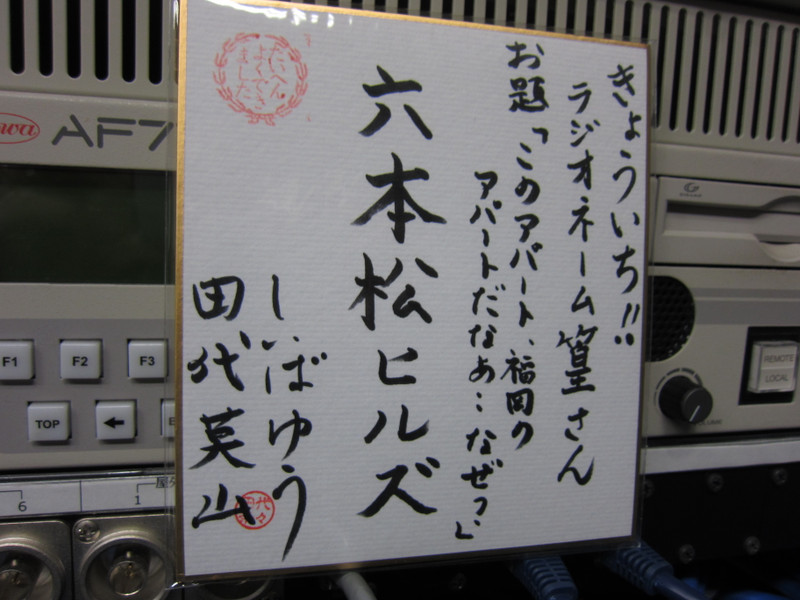 きょういち!!
ラジオネーム篁さん
お題「このアパート、福岡の
アパートだなぁ…なぜっ」
六本松ヒルズ
しいばゆう
田代英山
たいへん
よくでき
ました
AF7
F1
F2
F3
TOP
6
1
REMOTE
LOCAL